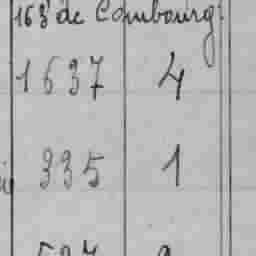 163 de Combourg.
1637 4
335 1